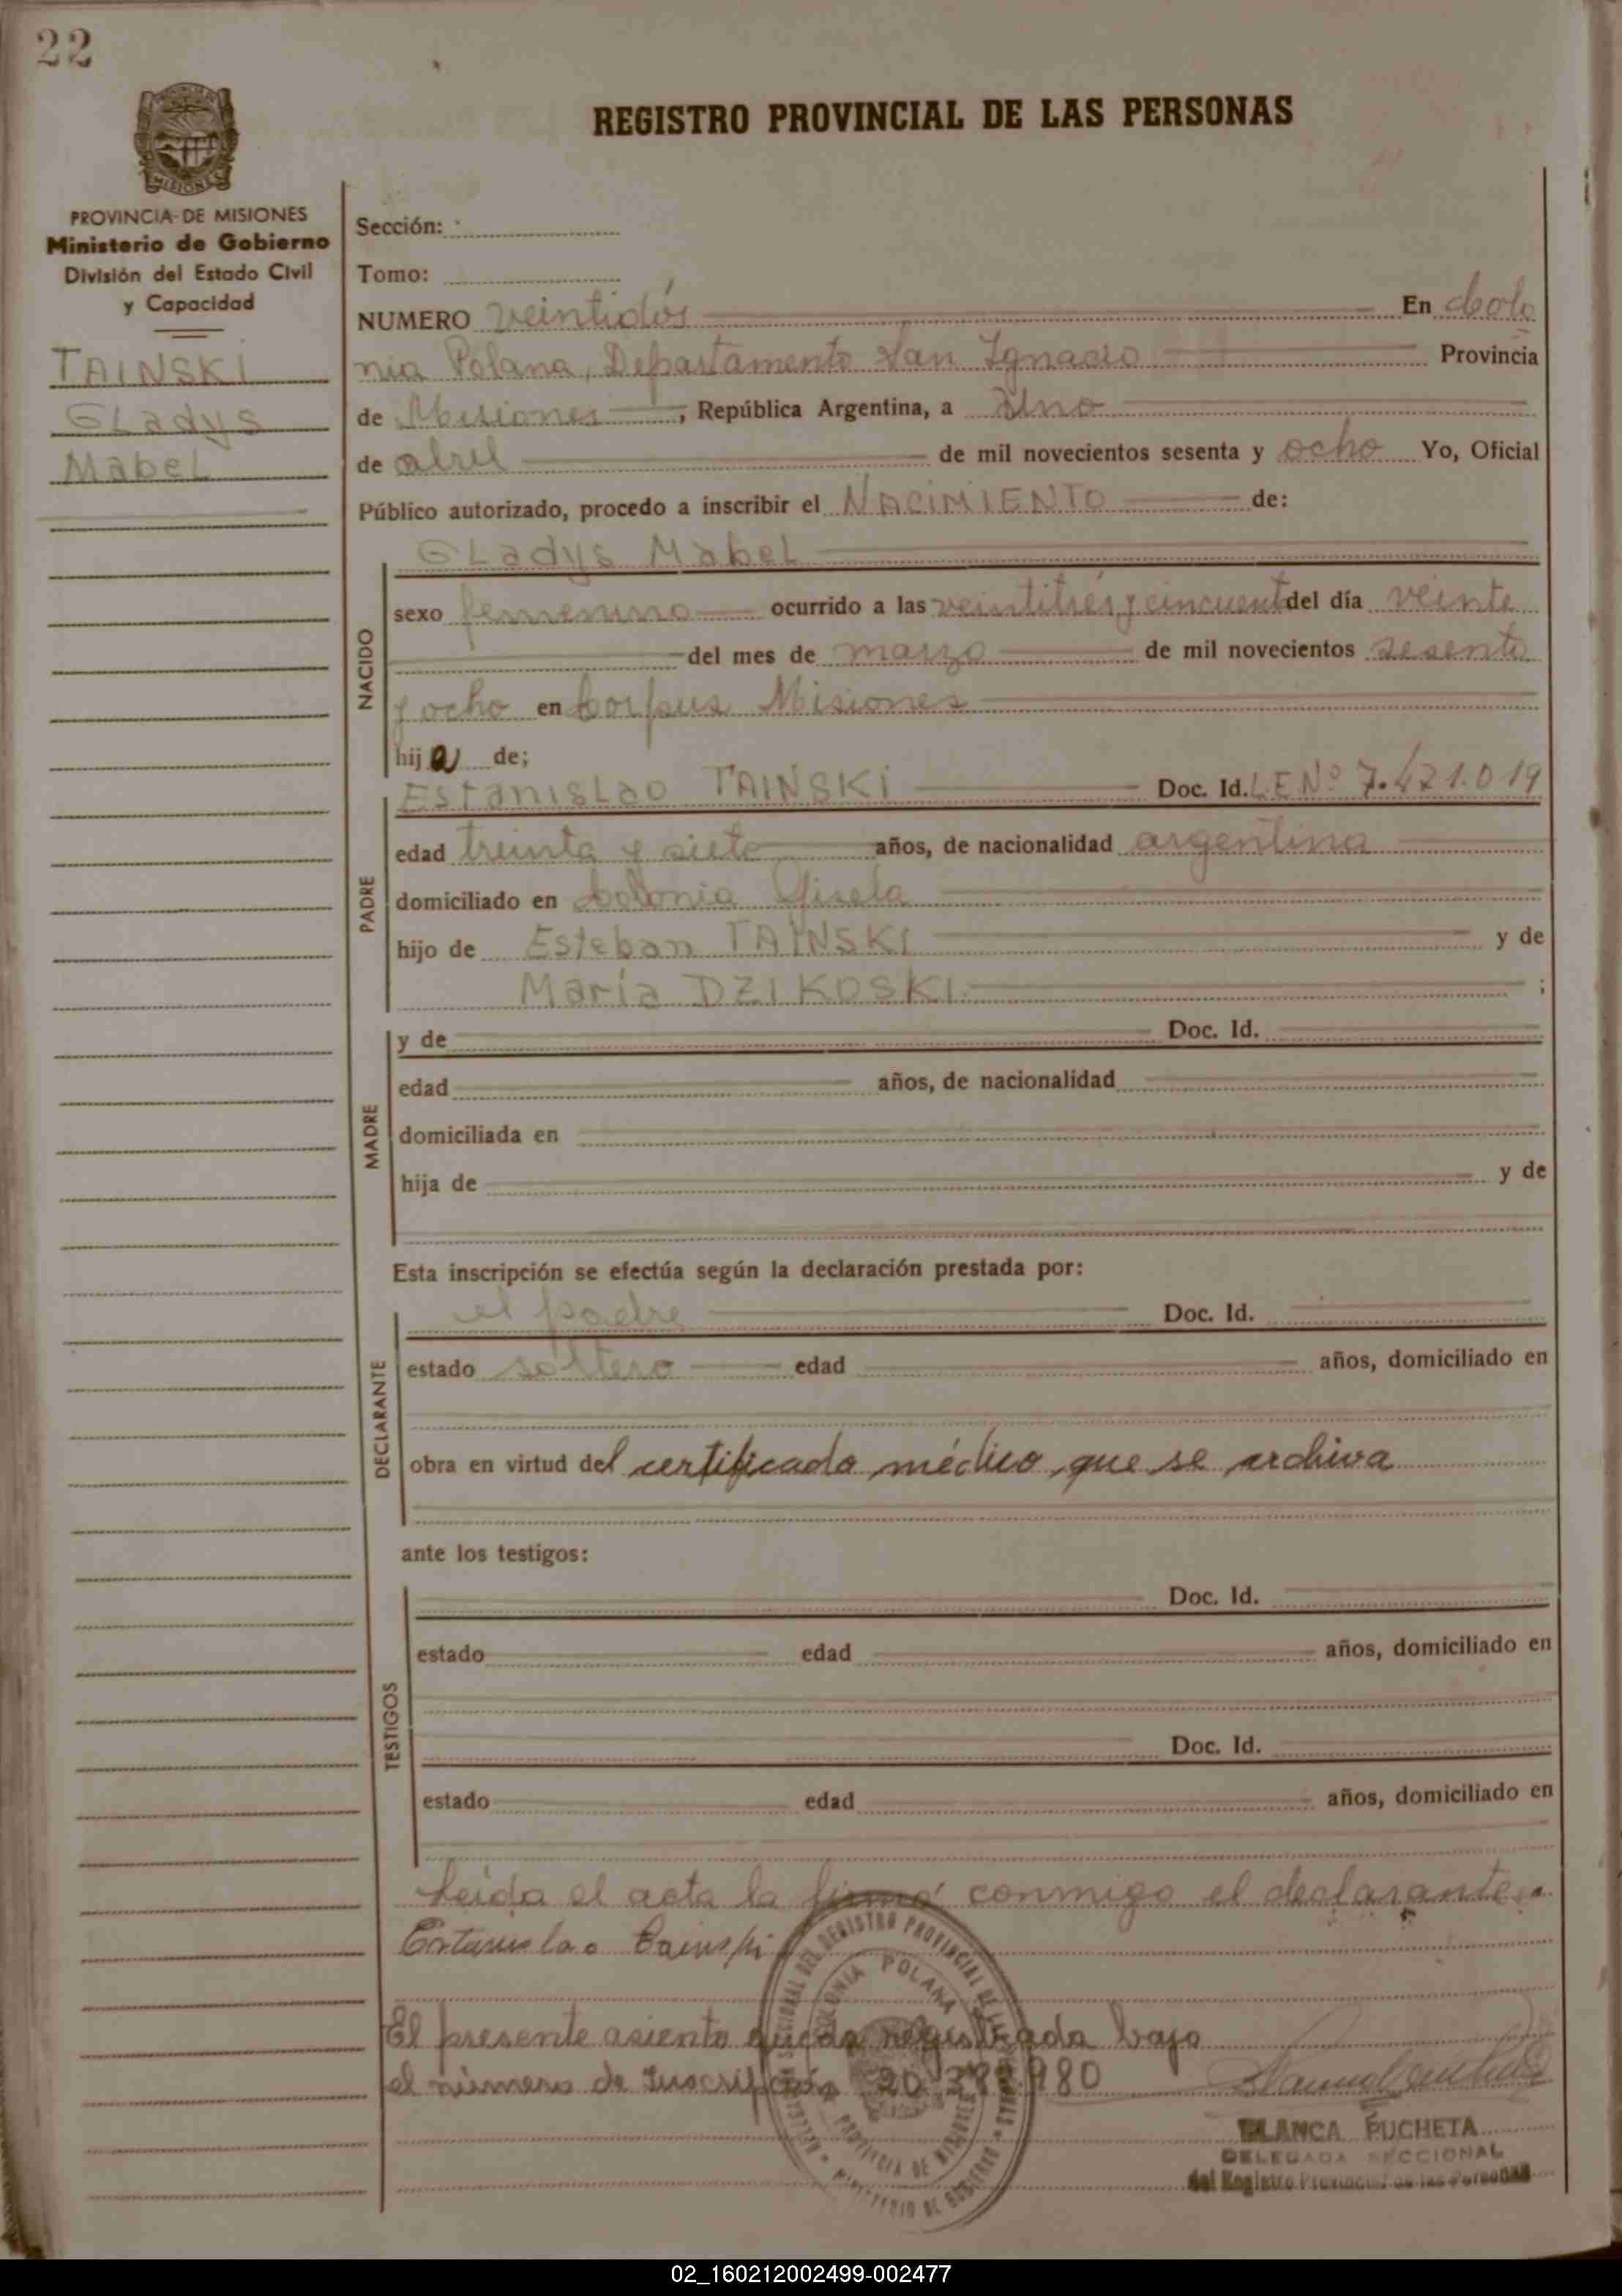 22
REGISTRO PROVINCIAL DE LAS PERSONAS
PROVINCIA DE MISIONES
Ministerio de Gobierno
División del Estado Civil
y Capacidad
TAINSKI
GLadys
MabeL
Sección:
Tomo:
NUMERO veintidós En Colo
nia Polana, Departamento San Ignacio Provincia
de Misiones, República Argentina, a uno
de abril de mil novecientos sesenta y ocho Yo, Oficial
Público autorizado, procedo a inscribir el NACIMIENTO de:
GLadys MabeL
NACIDO
sexo femenino ocurrido a las veintitrés y cincuenta del día veinte
del mes de marzo de mil novecientos sesenta
y ocho en Corpus Misiones
hija de;
PADRE
EstanisLao TAINSKI Doc. Id. L.E.Nº 7.471.019
edad treinta y siete años, de nacionalidad argentina
domiciliado en Colonia Gisela
hijo de Esteban TAINSKI y de
María DZIKOSKI ;
MADRE
y de Doc. Id.
edad años, de nacionalidad
domiciliada en
hija de y de
Esta inscripción se efectúa según la declaración prestada por:
DECLARANTE
el padre Doc. Id.
estado soltero edad años, domiciliado en
obra en virtud del certificado médico que se archiva
ante los testigos:
TESTIGOS
Doc. Id.
estado edad años, domiciliado en
Doc. Id.
estado edad años, domiciliado en
Leída el acta la firmó conmigo el declarante.
Estanislao Tainski
El presente asiento queda registrada bajo
el número de Inscripción 20 980
COLONIA POLANA
PROVINCIA DE MISIONES
BLANCA PUCHETA
DELEGADA SECCIONAL
del Registro Provincial de las Personas
02_160212002499-002477